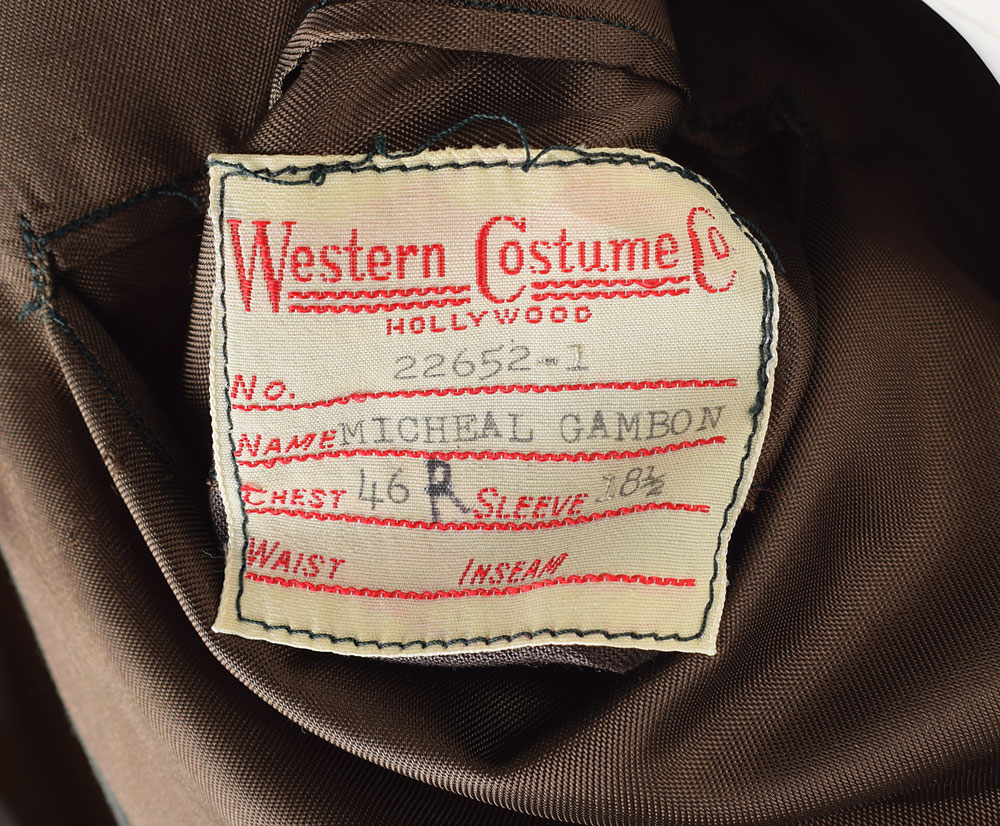 Western Costume Co.
HOLLYWOOD
NO. 22652-1
NAME MICHEAL GAMBON
CHEST 46 R SLEEVE 18½
WAIST INSEAM